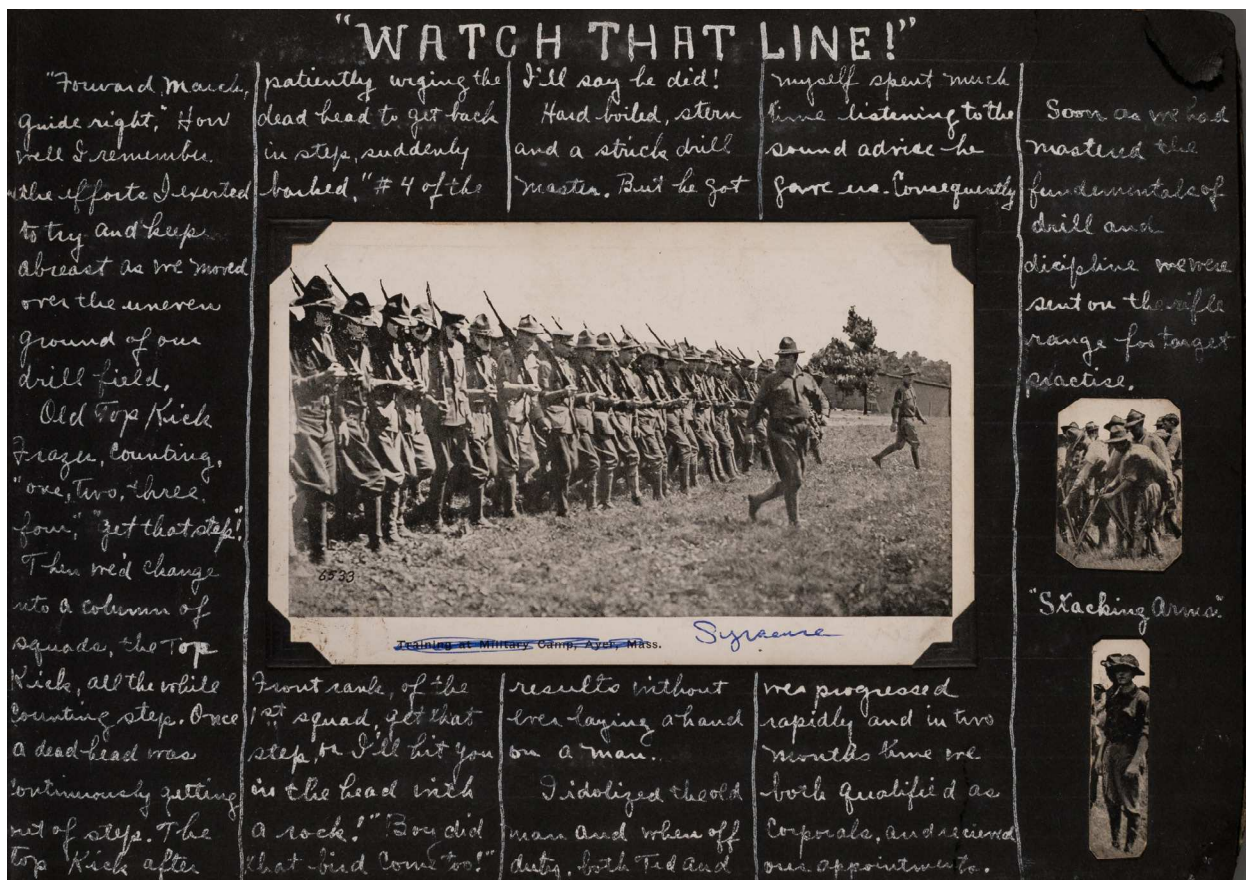 "WATCH THAT LINE!"
"Forward March,
guide right," How
well I remember
the efforts I exerted
to try and keep
abreast as we moved
over the uneven
ground of our
drill field.
Old Top Kick
Frazer, Counting,
"one, two, three,
four," "get that step"!
Then we'd change
into a column of
squads, the Top
Kick, all the while
counting step. Once
a dead head was
continuously getting
out of step. The
top Kick after
patiently urging the
dead head to get back
in step, suddenly
barked, "#4 of the
Front rank, of the
1st squad, get that
step, or I'll hit you
in the head with
a rock!" "Boy did
that bird come too!"
I'll say he did!
Hard boiled, stern
and a strick drill
master. But he got
results without
ever laying a hand
on a man.
I idolized the old
man and when off
duty, both Ted and
myself spent much
time listening to the
sound advise he
gave us. Consequently
we progressed
rapidly and in two
months time we
both qualified as
Corporals, and recieved
our appointments.
Soon as we had
mastered the
fundementals of
drill and
dicipline we were
sent on the rifle
range for target
practise.
6533
Training at Military Camp, Ayer, Mass.
Syracuse
"Stacking Arms"